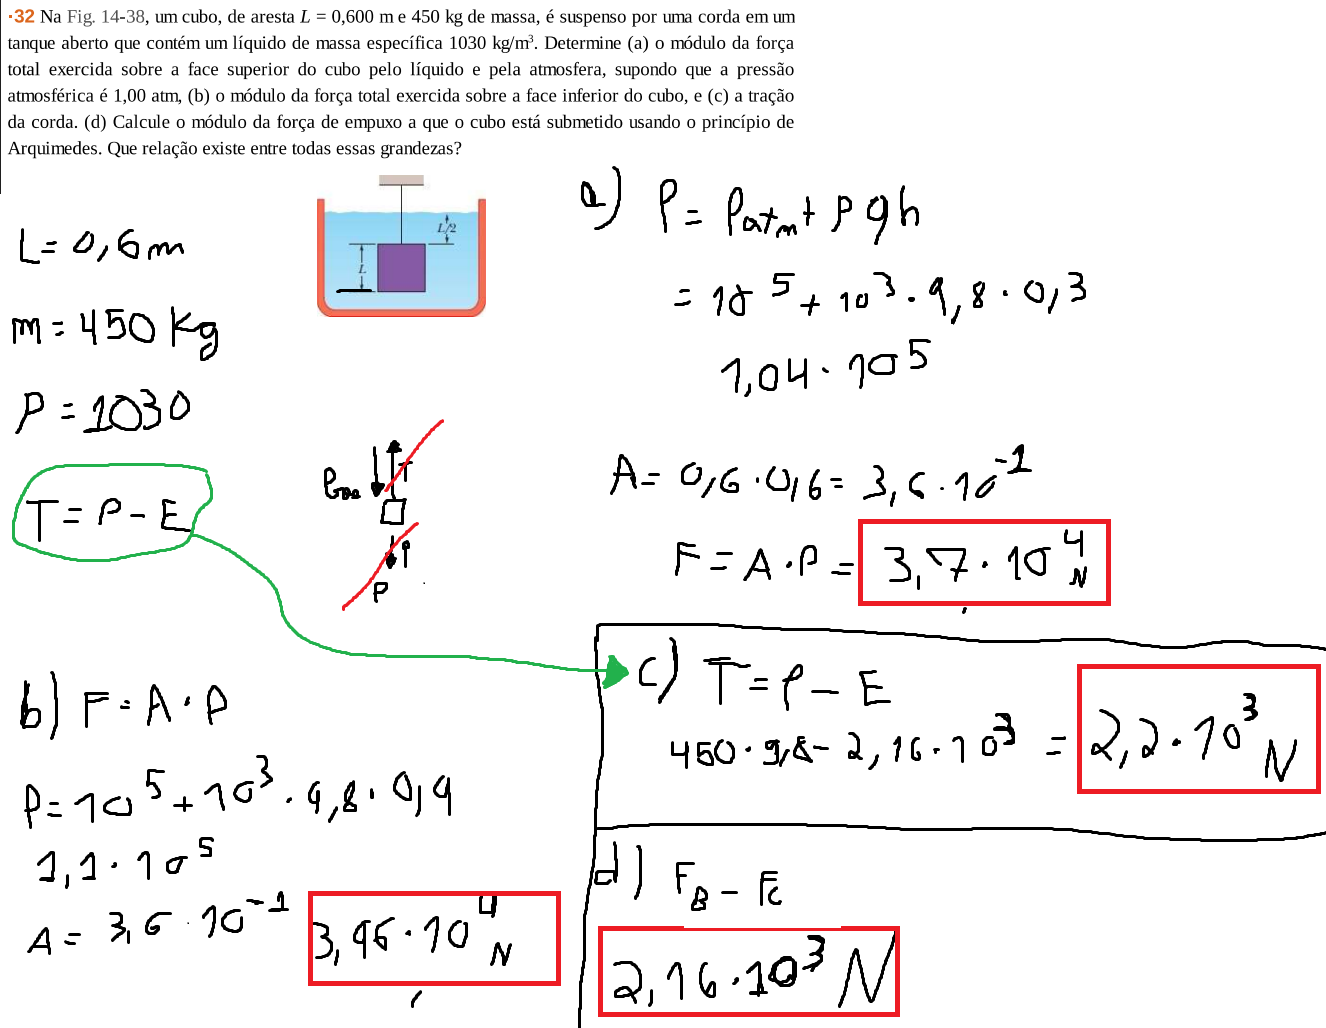 ·32 Na Fig. 14-38, um cubo, de aresta L = 0,600 m e 450 kg de massa, é suspenso por uma corda em um
tanque aberto que contém um líquido de massa específica 1030 kg/m³. Determine (a) o módulo da força
total exercida sobre a face superior do cubo pelo líquido e pela atmosfera, supondo que a pressão
atmosférica é 1,00 atm, (b) o módulo da força total exercida sobre a face inferior do cubo, e (c) a tração
da corda. (d) Calcule o módulo da força de empuxo a que o cubo está submetido usando o princípio de
Arquimedes. Que relação existe entre todas essas grandezas?
L/2
L
L = 0,6 m
m = 450 kg
ρ = 1030
T = P - E
T
P
P
a) P = Patm + ρ g h
= 10⁵ + 10³ · 9,8 · 0,3
1,04 · 10⁵
A = 0,6 · 0,6 = 3,6 · 10⁻¹
F = A · P = 3,7 · 10⁴ N
b) F = A · P
P = 10⁵ + 10³ · 9,8 · 0,9
1,1 · 10⁵
A = 3,6 · 10⁻¹
3,96 · 10⁴ N
c) T = P - E
450 · 9,8 - 2,16 · 10³ = 2,2 · 10³ N
d) F_B - F_C
2,16 · 10³ N